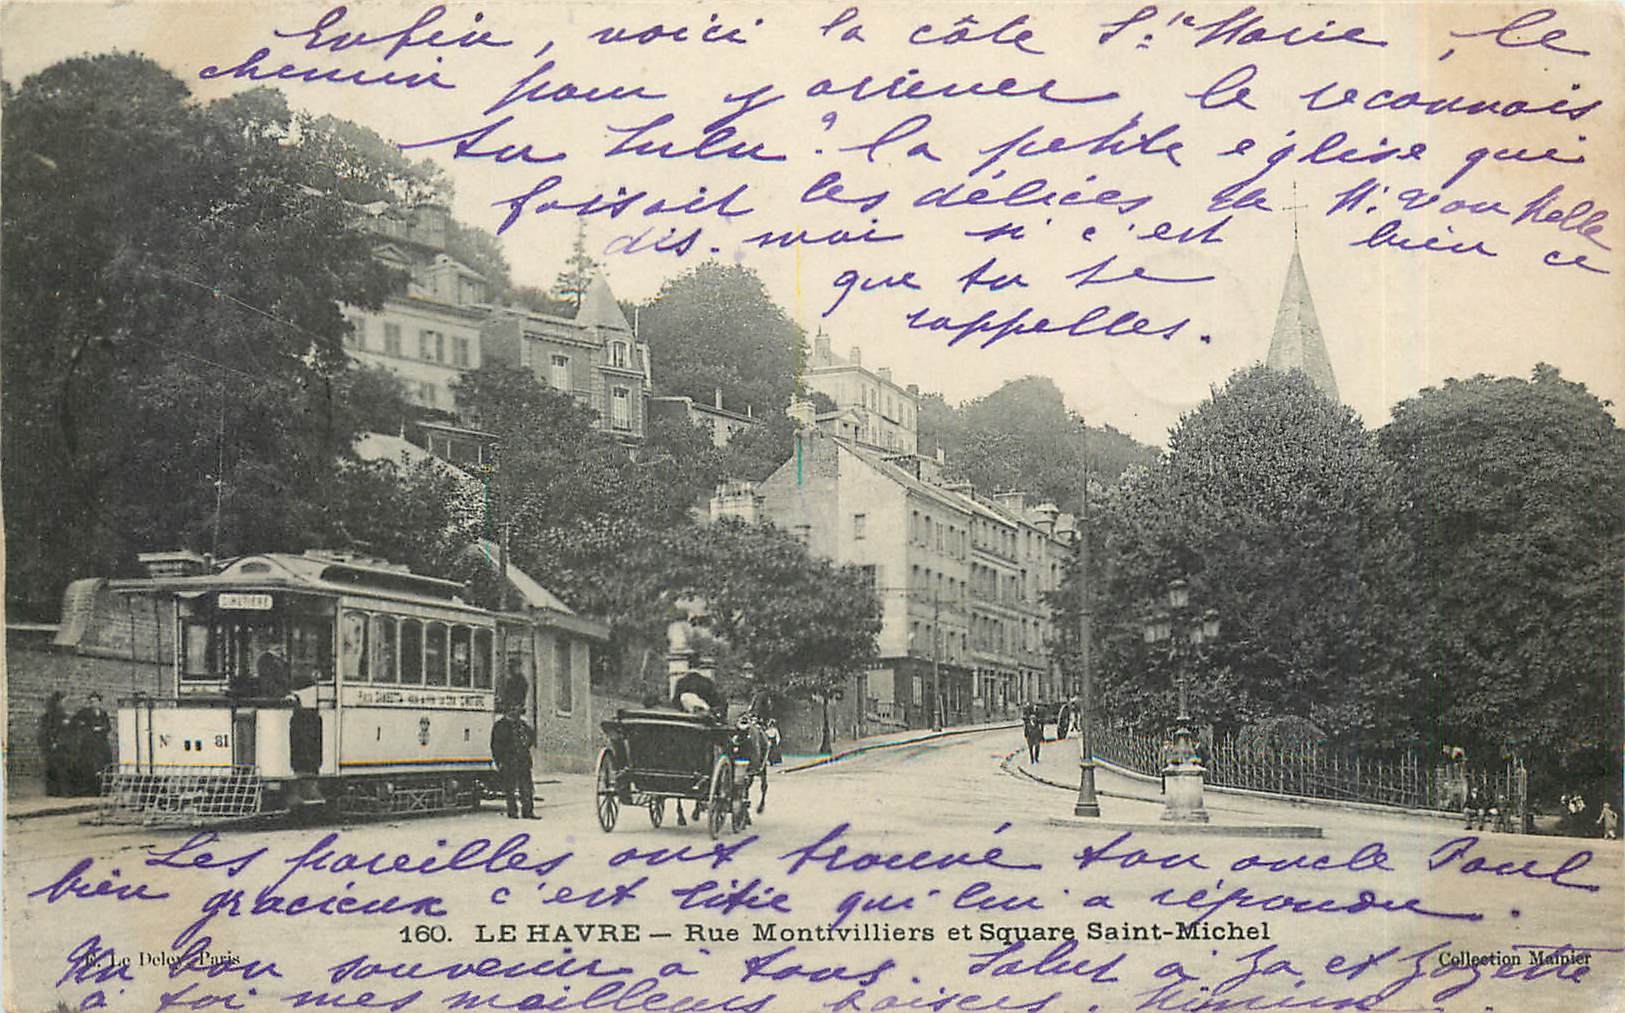 Enfin, voici la côte Ste Marie, le
chemin pour y arriver, le reconnais
tu Lulu? la petite église qui
faisait les délices de M.
dis-moi si c'est bien ce
que tu te
rappelles.
CIMETIERE
No 81
Les pareilles ont trouvé ton oncle Paul
bien gracieux c'est titie qui lui a répondu.
160. LE HAVRE — Rue Montivilliers et Square Saint-Michel
E. Le Deley, Paris
Collection Mainier
Un bon souvenir à tous. Salut à Za et Zozette
à toi mes meilleurs baisers.